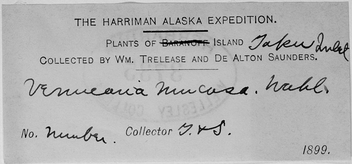 THE HARRIMAN ALASKA EXPEDITION.
PLANTS OF BARANOFF ISLAND Taku Inlet
COLLECTED BY WM. TRELEASE AND DE ALTON SAUNDERS.
Verrucaria mucosa. Wahl.
No. Number. Collector T & S.
1899.